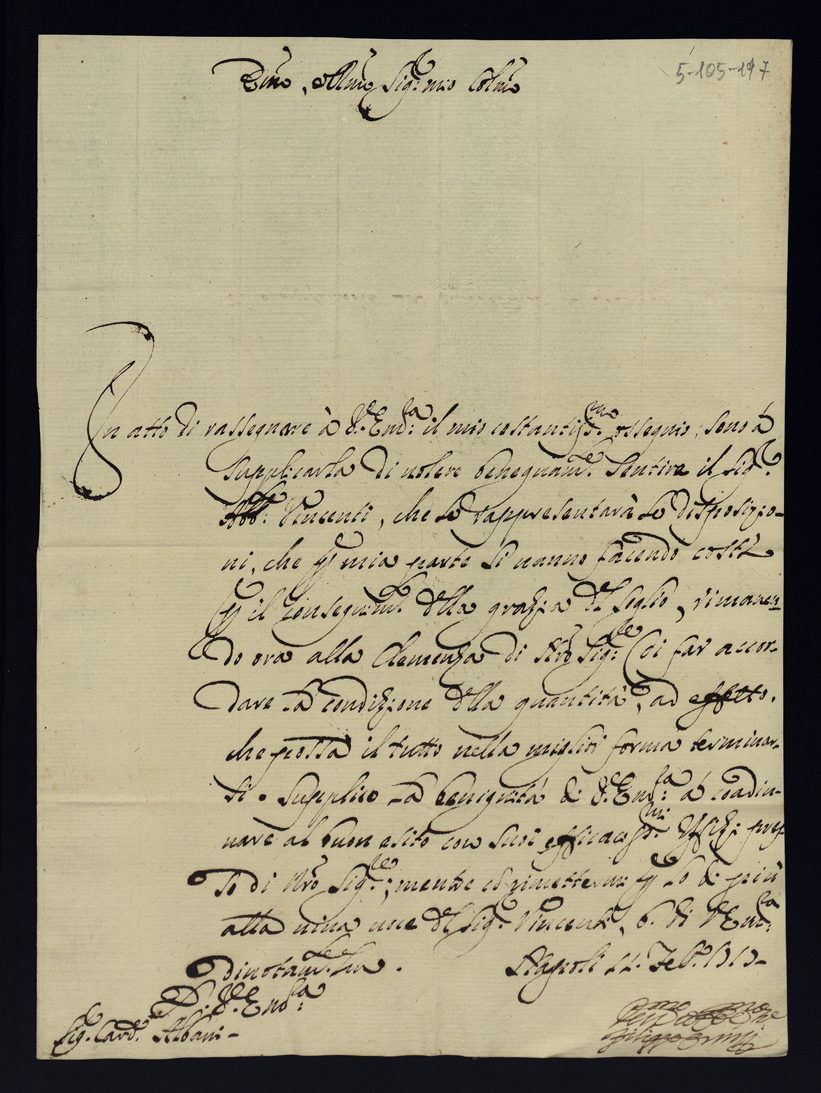 5-105-197
Em̃o, e Rm̃o Sig.re mio Colm̃o
In atto di rassegnare à V.ra Em.za il mio costantiss.mo ossequio, sono à
supplicarla di volere benegnam.te sentire il Sig.re
Abb.e Vincenti, che Le rappresentarà le disposizio-
ni, che p mia parte si vanno facendo costì
p il conseguim.to della grazia del soglio, rimanen-
do ora alla Clemenza di Nr̃o Sig.re il far accor-
dare la condizione della quantità, ad effetto,
che possa il tutto nella miglior forma terminar-
si. Supplico la benignità di V.ra Em.za à coadiu-
vare al buon esito con suoi efficaciss.mi Uffizi pres-
so di Nr̃o Sig.re; mentre rimettermi p lo di più
alla viva voce del Sig.re Vincenti, di V. Em.za
divotam.te
Napoli 11. Feb.
D. V.ra Em.za
Sig.r Card.e Albani-
Filippo